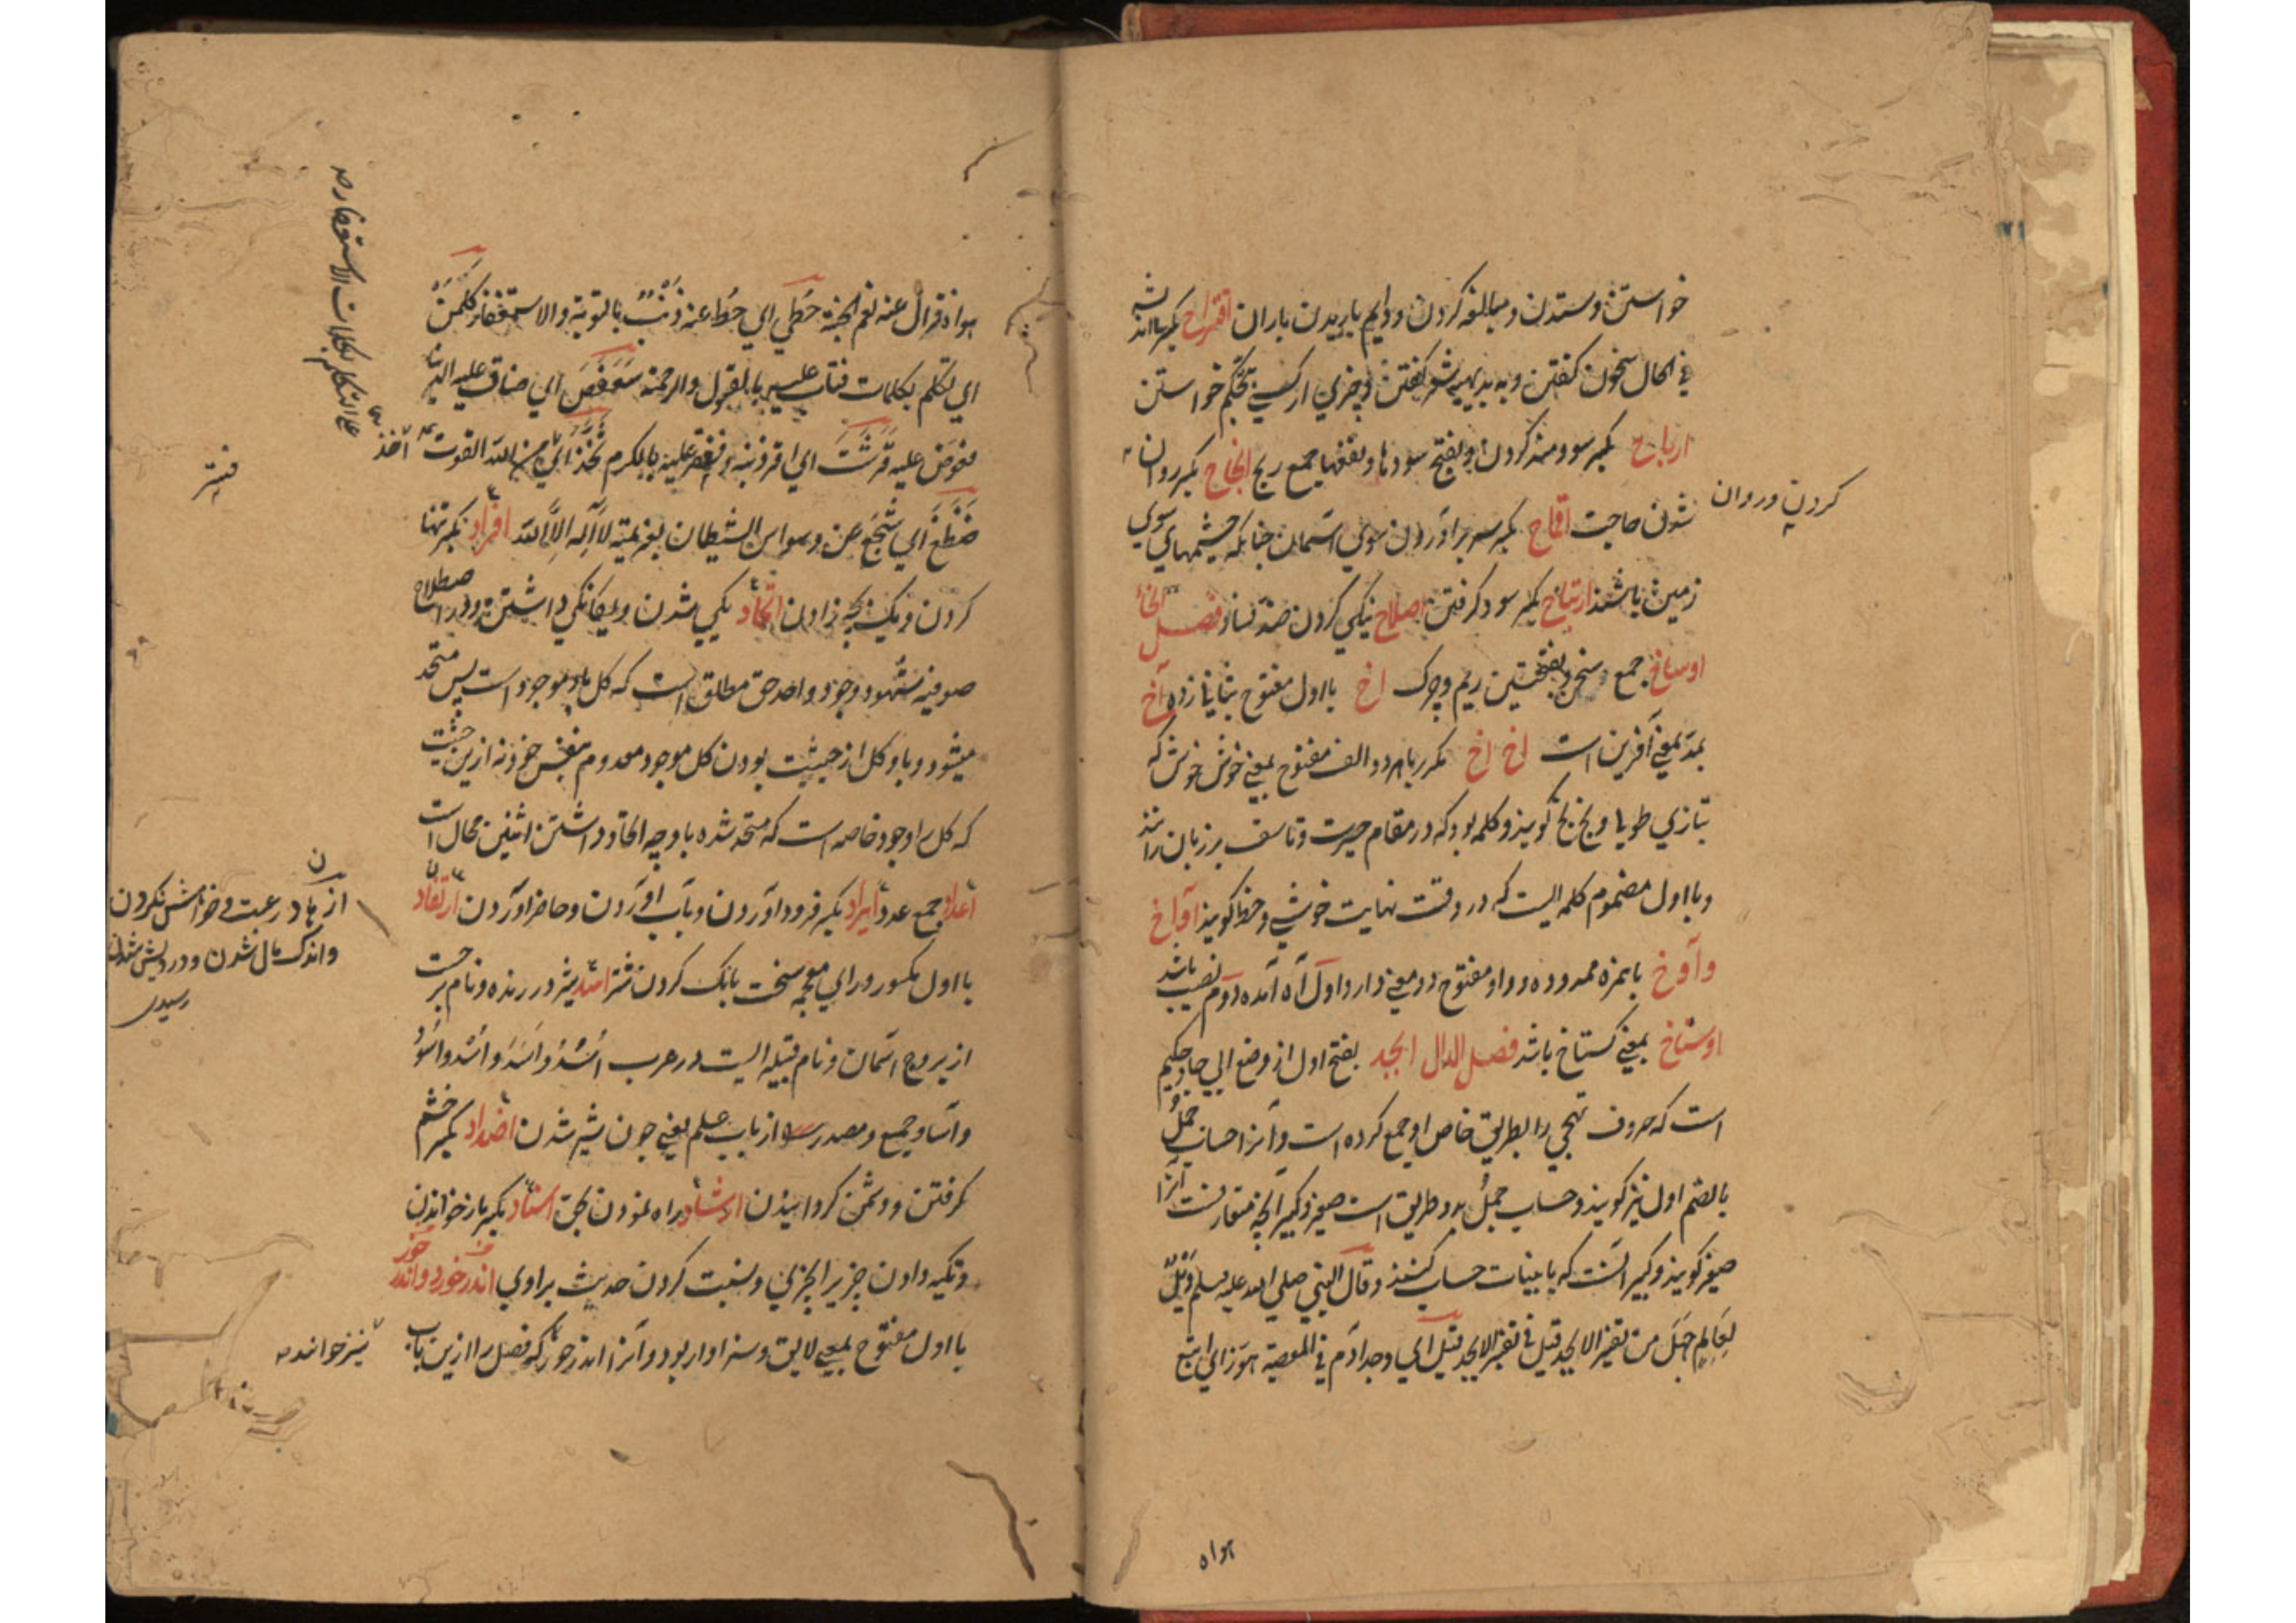 خواستن و ستدن و مبالغه کردن و دایم باریدن باران اقتراح بکسر اندیشه
فی الحال سخن گفتن و به بدیهه شعر گفتن و چیزی از کسی بتحکم خواستن
ارباح بکسر سودمند کردن و بفتح سودها و نفعها جمع ربح انجاح بکسر روان
کردن و روان
شدن حاجت اقماح بکسر سر برآوردن سوی آسمان چنانکه چشمهای سوی
زمین باشند ارتباح بکسر سود گرفتن اصلاح نیکی کردن ضد فساد فصل الخاء
اوساخ جمع وسخ بفتحتین ریم و چرک اخ با اول مفتوح بثانی زده آخ
بمد بمعنی آفرین است اخ اخ مکرر با هر دو الف مفتوح بمعنی خوش خوش که
بتازی طوبی و بخ بخ گویند و کلمه بود که در مقام حیرت و تاسف بر زبان رانند
و با اول مضموم کلمه ایست که در وقت نهایت خوشی و حظ گویند آواخ
و آوخ با همزه ممدوده و واو مفتوح دو معنی دارد اول آه آمده دوم نصیب باشد
اوستاخ بمعنی گستاخ باشد فصل الدال ابجد بفتح اول از وضع ابی جاد حکیم
است که حروف تهجی را بطریق خاص او جمع کرده است و آنرا حساب جمل
بالضم اول نیز گویند و حساب جمل بدو طریق است صغیر و کبیر آنچه متعارفست آنرا
صغیر گویند و کبیر آنست که با بینات حساب کنند و قال النبی صلی الله علیه وسلم ویل
لعالم جهل من تفسیر الابجد قیل فی تفسیر الابجد قیل ای وجد آدم فی المعصیة هوز ای اتبع
هواه
هواه فزال عنه نعم الجنة حطی ای حط عنه ذنب بالتوبة والاستغفار کلمن
ای تکلم بکلمات فتاب علیه بالقول والرحمة سعفص ای ضاق علیه الدنیا
ففوض علیه قرشت ای اقر ذنبه فغفر علیه بالکرم ثخذ ای من الله القوت اخذ
ضظغ ای شجع عن وسواس الشیطان بعزیمة لا اله الا الله افراد بکسر تنها
کردن و یک بچه زادن اتحاد یکی شدن و یگانگی داشتن و در اصطلاح
صوفیه شهود وجود واحد حق مطلق است که کل باو موجود است پس متحد
میشود و باو کل از حیثیت بودن کل موجود معدوم بنفس خود نه ازین حیثیت
که کل را وجود خاصه است که متحد شده باو چه اتحاد داشتن اثنین محال است
اعداد جمع عدد ایراد بکسر فرود آوردن و باب آوردن و حاضر آوردن
با اول مکسور و رای معجمه سخت بانگ کردن شتر اسد شیر درنده و نام برجست
از بروج آسمان و نام قبیله ایست در عرب اسد و اسد و اسد و اسود
و آساد جمع و مصدر از باب علم یعنی چون شیر شدن اضداد بکسر خشم
گرفتن و دشمن گردانیدن ارشاد راه نمودن بحق اسناد بکسر باز خواندن
و تکیه دادن چیزی را بچیزی و نسبت کردن حدیث براوی اندر خورد و اندر خور
با اول مفتوح بمعنی لایق و سزاوار بود و آنرا اندر خور که فصل را ازین باب
نیز خوانند
علی التکلم بکلمات الاستغفار
از هاد رغبت و خواهش نکردن
و اندک مال شدن و درویش شدن
رسیدی